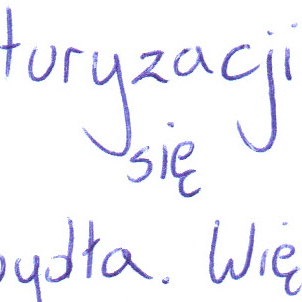 turyzacji
się
bydła. Wię